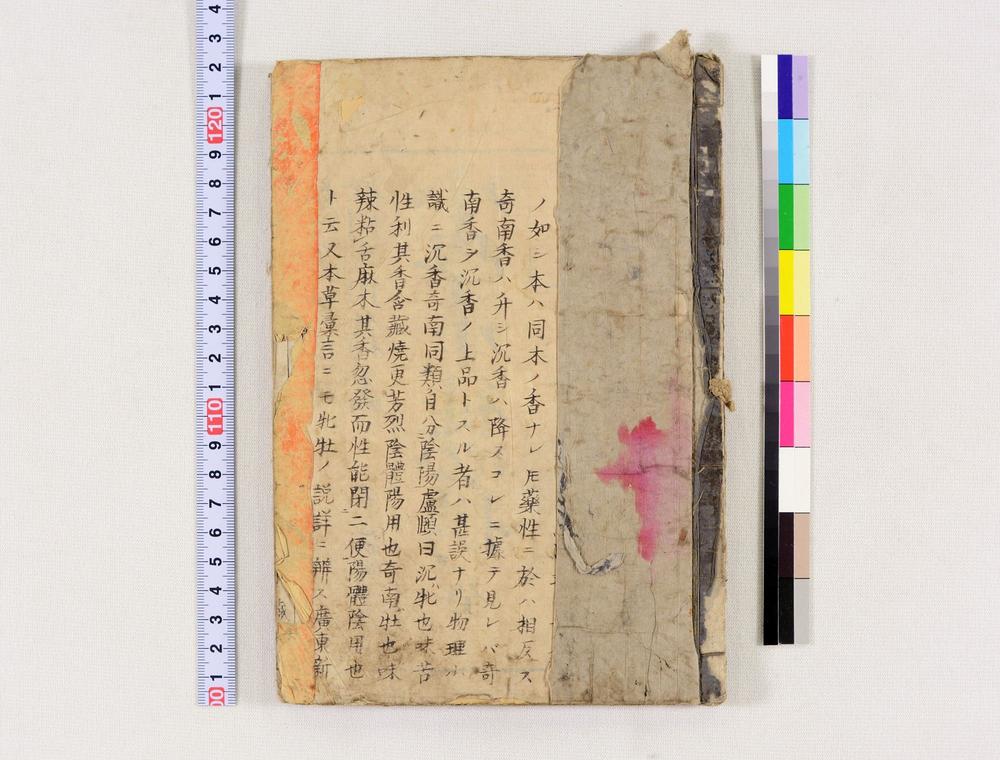 ノ如シ本ハ同木ノ香ナレ𪜈藥性ニ於ハ相反ス
奇南香ハ升シ沉香ハ降スコレニ據テ見レバ奇
南香ヲ沉香ノ上品トスル者ハ甚誤ナリ物理小
識ニ沉香奇南同類自分陰陽盧頥曰沉牝也味苦
性利其香含藏燒更芳烈陰體陽用也奇南牡也味
辣粘舌麻木其香忽發而性能閉二便陽體陰用也
ト云又本草彙言ニモ牝牡ノ説詳ニ辨ス廣東新